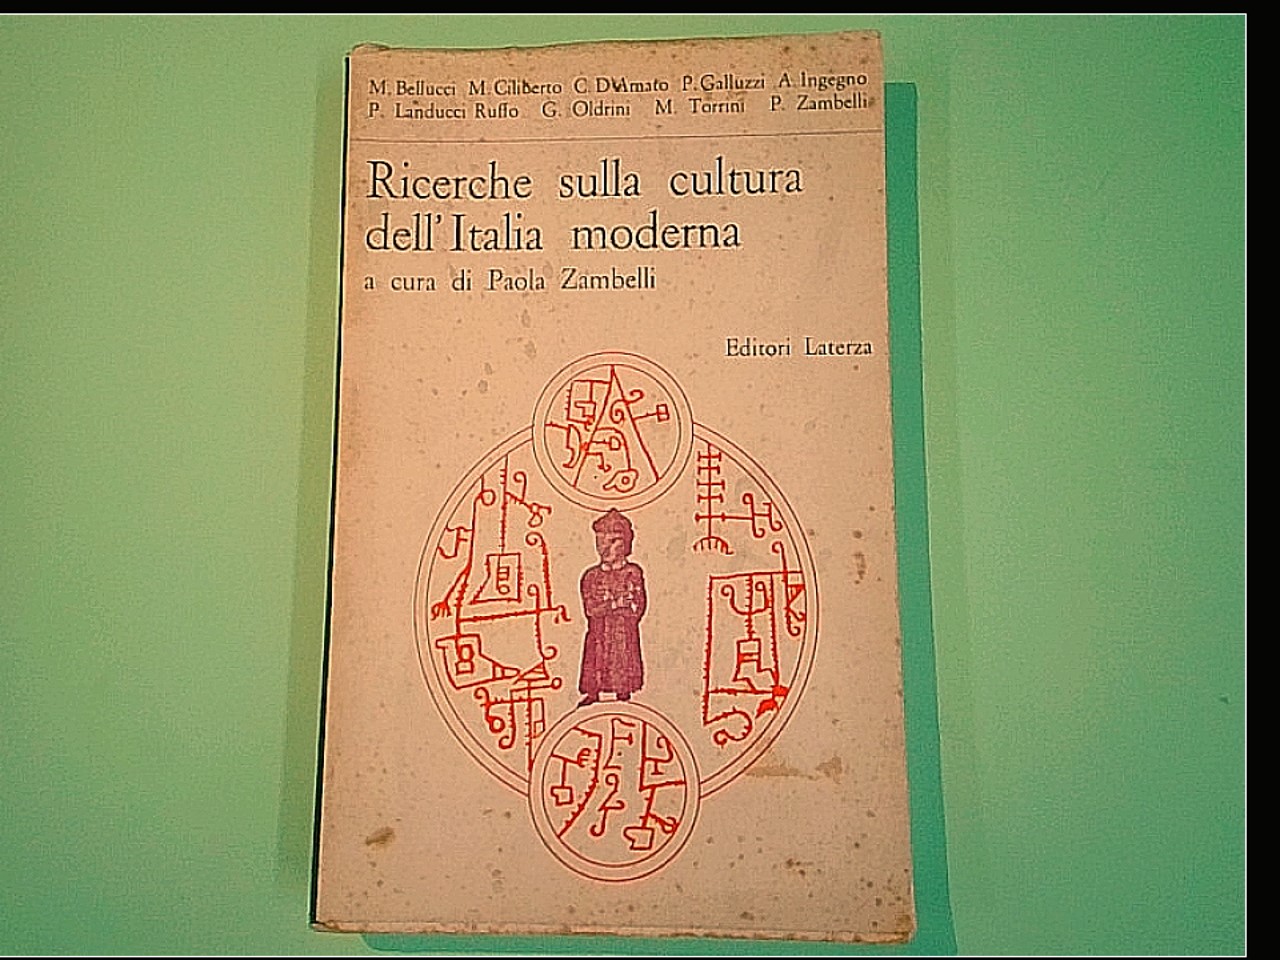 M. Bellucci M. Ciliberto C. D'Amato P. Galluzzi A. Ingegno
P. Landucci Ruffo G. Oldrini M. Torrini P. Zambelli
Ricerche sulla cultura
dell'Italia moderna
a cura di Paola Zambelli
Editori Laterza